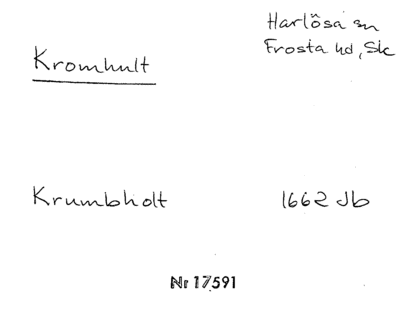 Harlösa sn
Frosta hd, Sk
Kromhult
Krumbholt 1662 Jb
Nr 17591